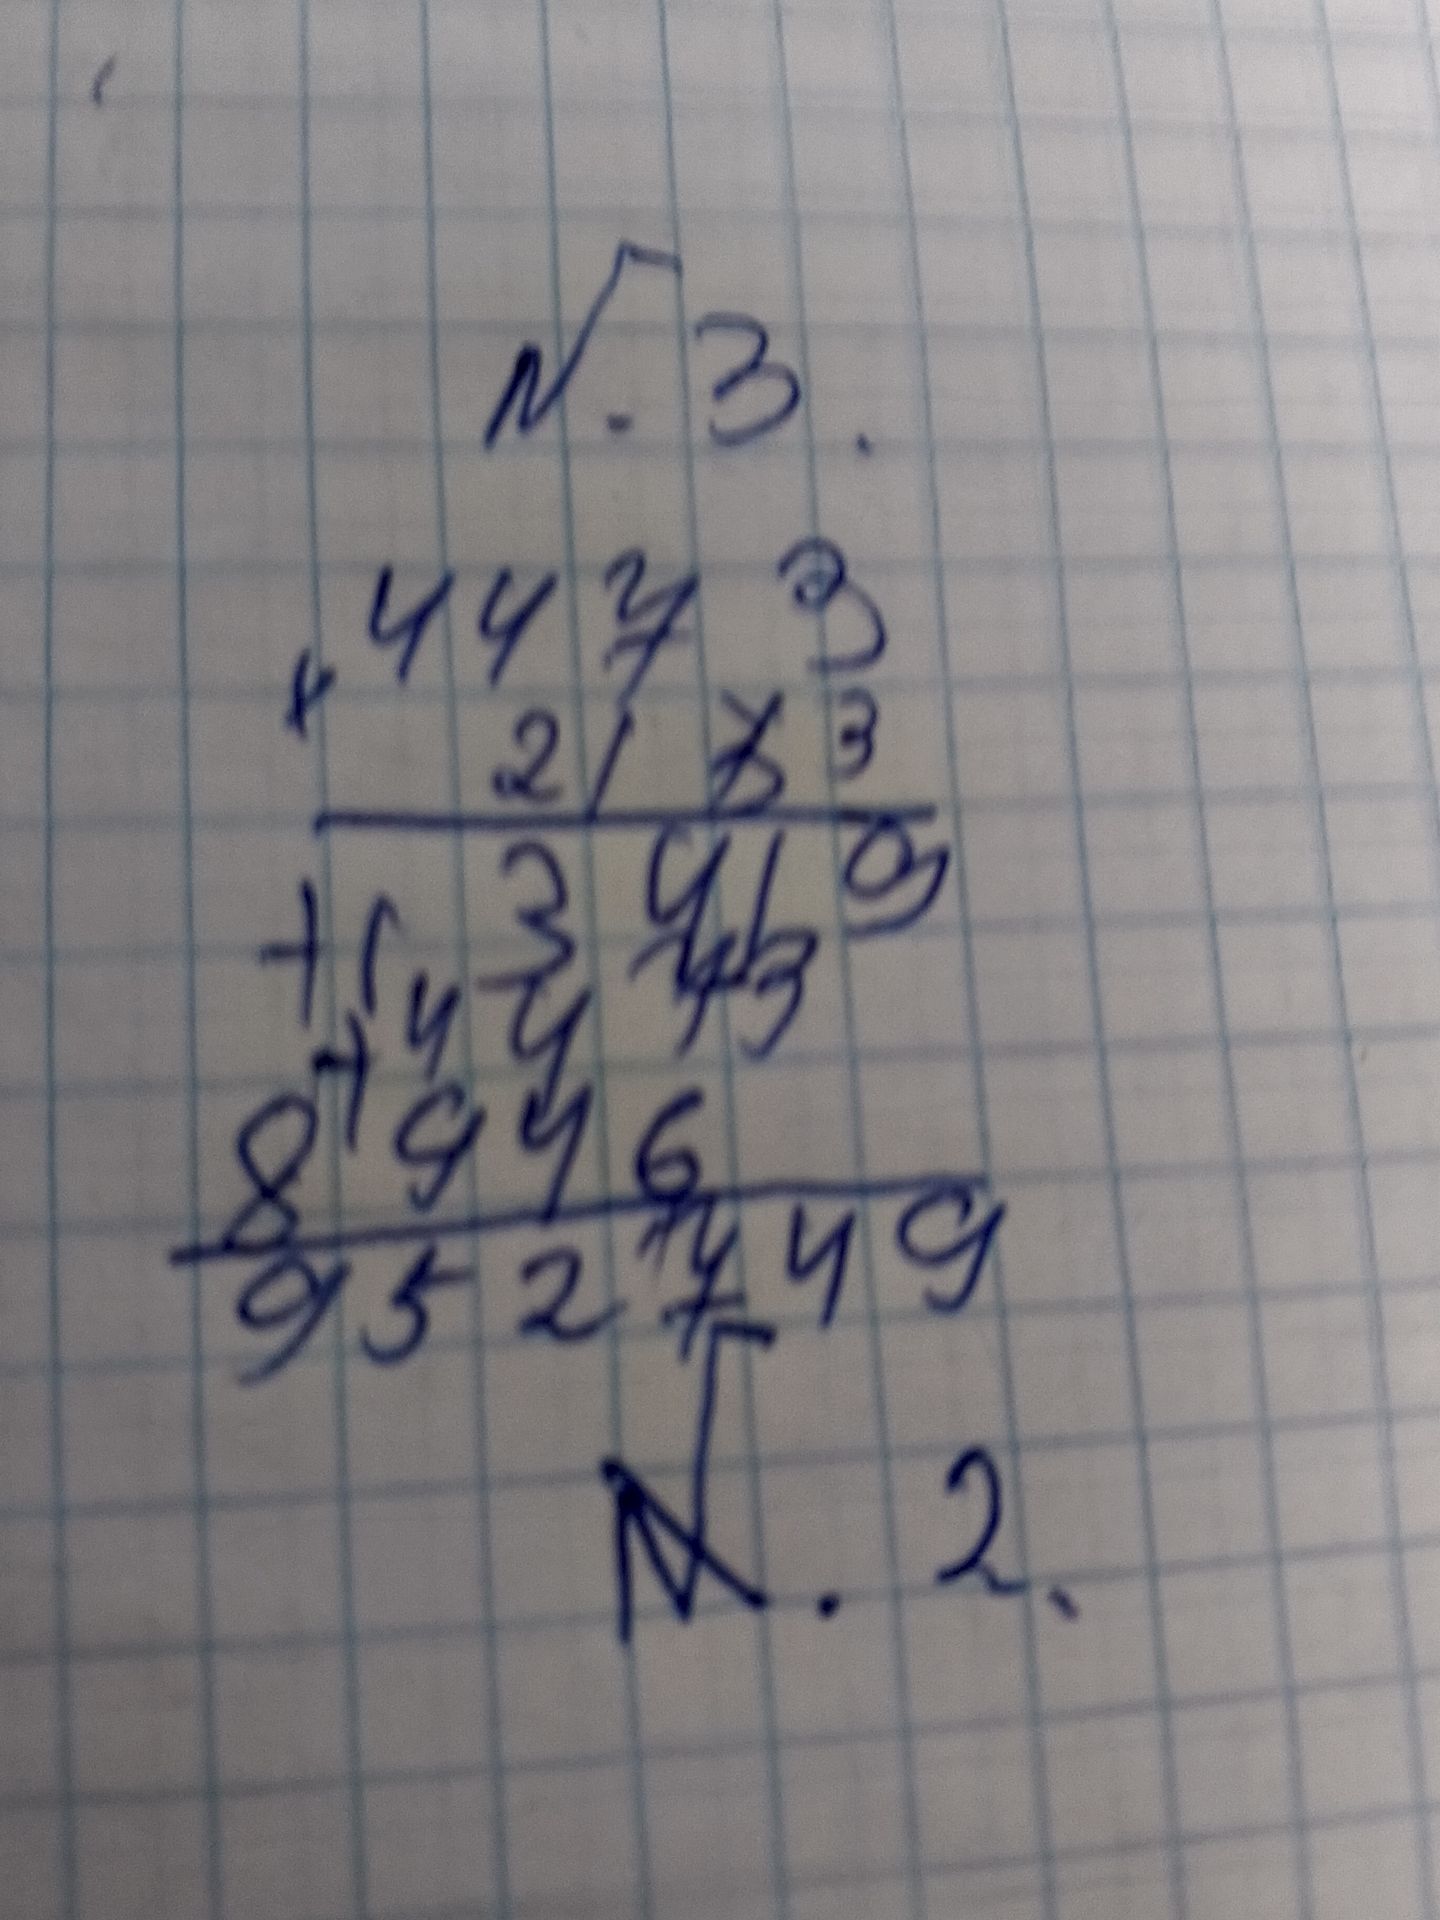 N. 3.
× 4473
213
+ 13419
+ 4473
8946
952749
N. 2.